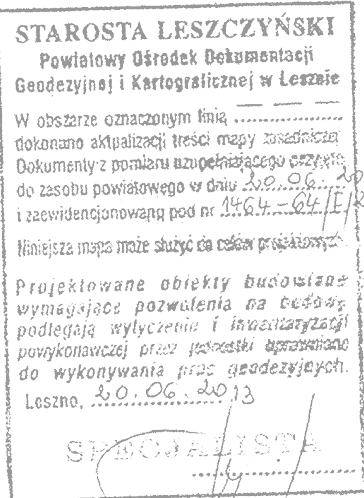 STAROSTA LESZCZYŃSKI
Powiatowy Ośrodek Dokumentacji
Geodezyjnej i Kartograficznej w Lesznie
W obszarze oznaczonym linią ..................
dokonano aktualizacji treści mapy zasadniczej
Dokumenty z pomiaru uzupełniającego przyjęto
do zasobu powiatowego w dniu 20.06.20
i zaewidencjonowano pod nr 1464-64/I/
Niniejsza mapa może służyć do celów projektowych
Projektowane obiekty budowlane
wymagające pozwolenia na budowę
podlegają wytyczeniu i inwentaryzacji
powykonawczej przez jednostki uprawnione
do wykonywania prac geodezyjnych.
Leszno, 20.06.2013
SPECJALISTA